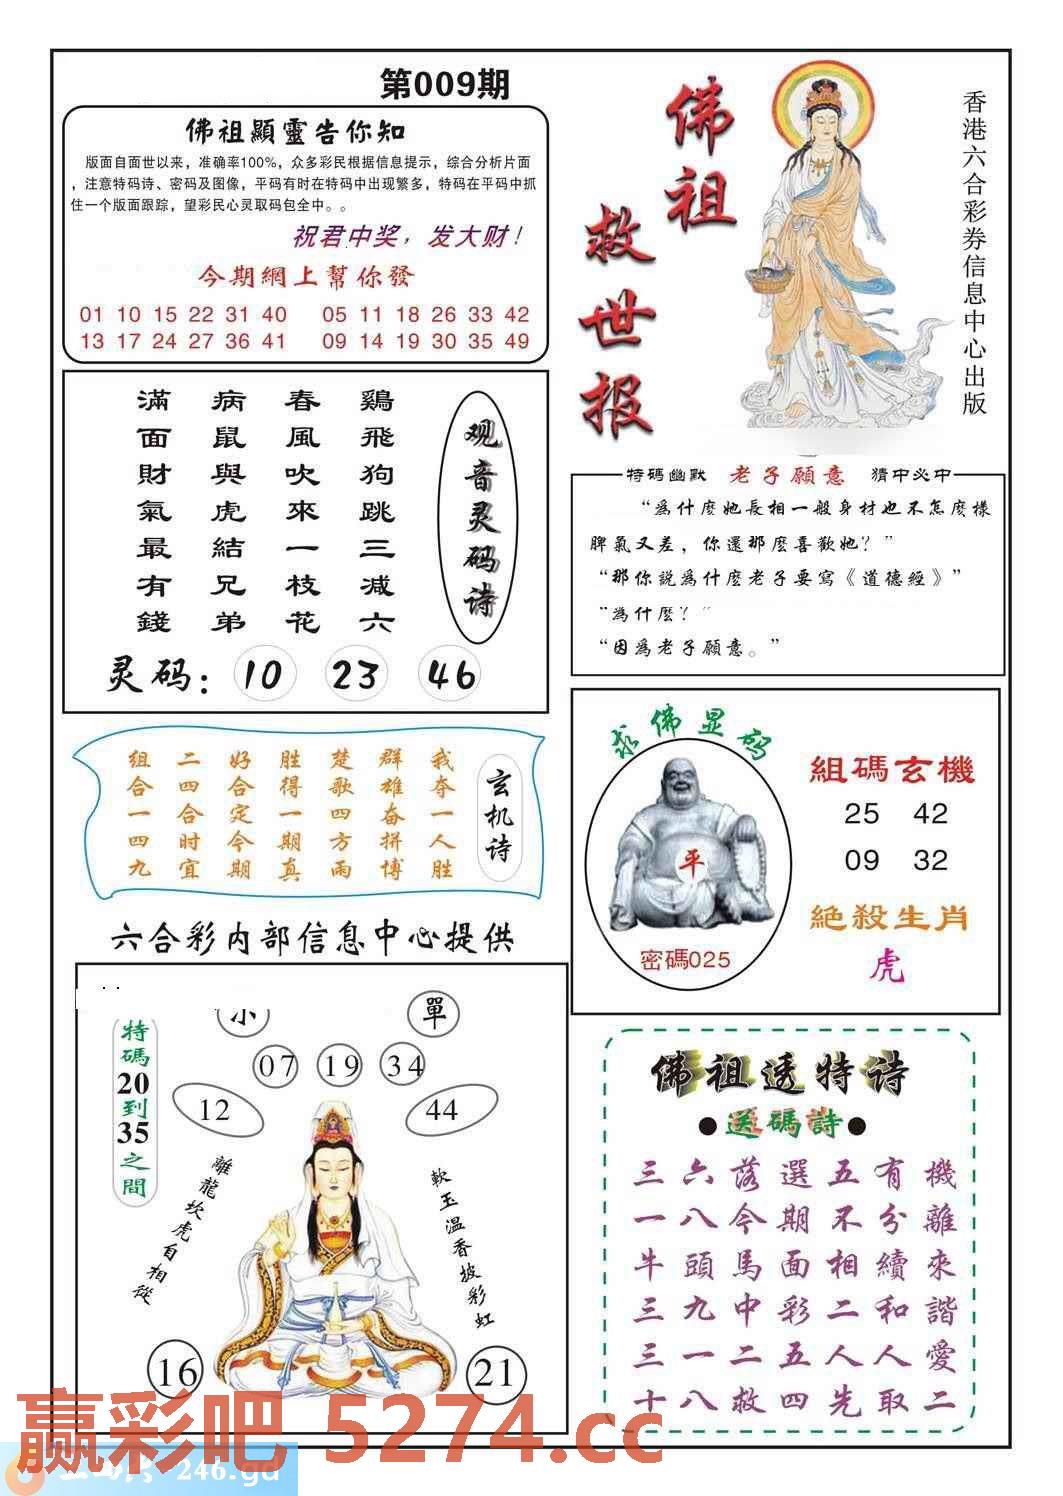 第009期
佛祖顯靈告你知
版面自面世以来，准确率100%，众多彩民根据信息提示，综合分析片面
，注意特码诗、密码及图像，平码有时在特码中出现繁多，特码在平码中抓
住一个版面跟踪，望彩民心灵取码包全中。。
祝君中奖，发大财！
今期網上幫你發
01 10 15 22 31 40 05 11 18 26 33 42
13 17 24 27 36 41 09 14 19 30 35 49
佛祖
救世报
香港六合彩券信息中心出版
观音灵码诗
鷄飛狗跳三减六
春風吹來一枝花
病鼠與虎結兄弟
滿面財氣最有錢
灵码：10 23 46
特碼幽默 老子願意 猜中必中
“爲什麼她長相一般身材也不怎麼樣
脾氣又差，你還那麼喜歡她？”
“那你説爲什麼老子要寫《道德經》”
“爲什麼？”
“因爲老子願意。”
玄机诗
我夺一人胜
群雄奋拼博
楚歌四方雨
胜得一期真
好合定今期
二四合时宜
组合一四九
求佛显码
平
密碼025
組碼玄機
25 42
09 32
絕殺生肖
虎
六合彩内部信息中心提供
單
07 19 34
12 44
特碼20到35之間
離龍坎虎自相從
軟玉溫香披彩虹
16 21
佛祖透特诗
●送碼詩●
三六落選五有機
一八今期不分離
牛頭馬面相續來
三九中彩二和諧
三一二五人人愛
十八救四先取二
赢彩吧 5274.cc
246.gd